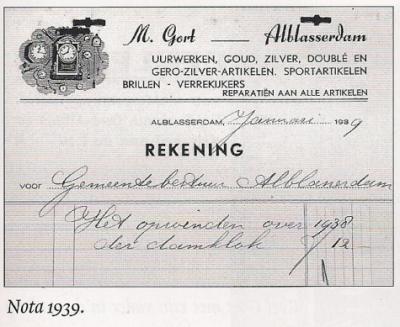 M. Gort — Alblasserdam
UURWERKEN, GOUD, ZILVER, DOUBLÉ EN
GERO-ZILVER-ARTIKELEN. SPORTARTIKELEN
BRILLEN - VERREKIJKERS
REPARATIËN AAN ALLE ARTIKELEN
ALBLASSERDAM, Januari 1939
REKENING
voor Gemeentebestuur Alblasserdam
Het opwinden over 1938
der damklok f 12 —
Nota 1939.